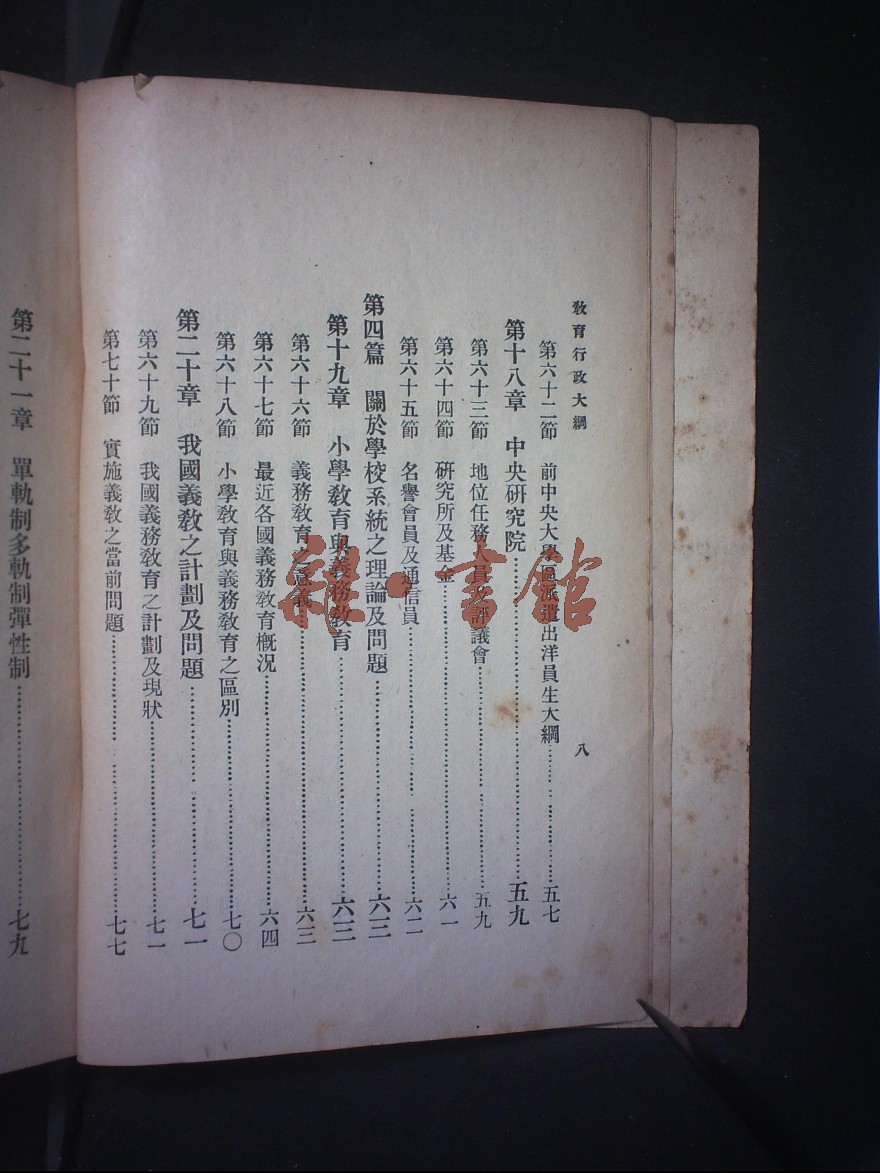 教育行政大綱
八
第六十二節 前中央大學區派遣出洋員生大綱……五七
第十八章 中央研究院……五九
第六十三節 地位任務人員及評議會……五九
第六十四節 研究所及基金……六一
第六十五節 名譽會員及通信員……六二
第四篇 關於學校系統之理論及問題……六三
第十九章 小學教育與義務教育……六三
第六十六節 義務教育之意義……六三
第六十七節 最近各國義務教育概況……六四
第六十八節 小學教育與義務教育之區別……七〇
第二十章 我國義教之計劃及問題……七一
第六十九節 我國義務教育之計劃及現狀……七一
第七十節 實施義教之當前問題……七七
第二十一章 單軌制多軌制彈性制……七九
雜·書館